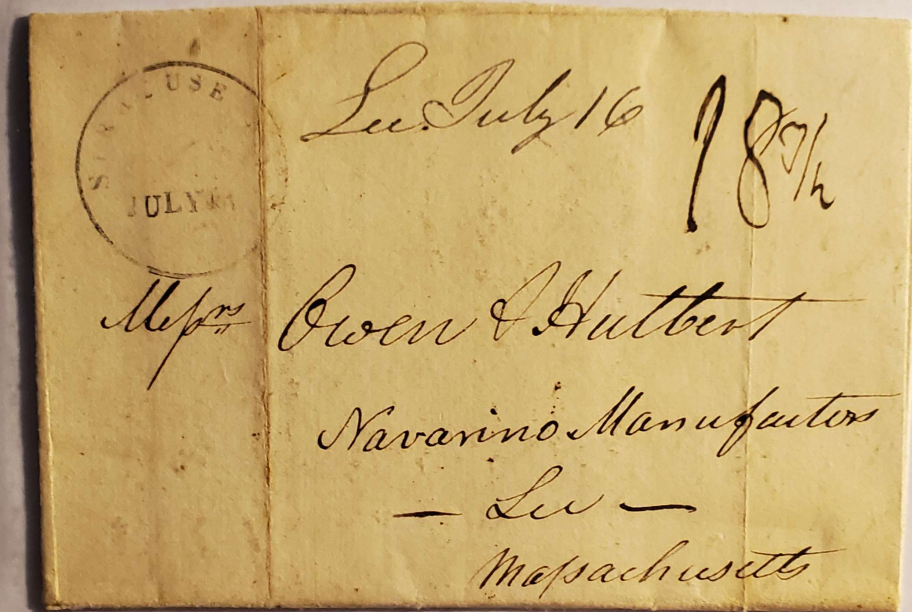 SYRACUSE
JULY
Lee. July 16
18 3/4
Messrs Owen & Hulbert
Navarino Manufactors
— Lee —
Massachusetts